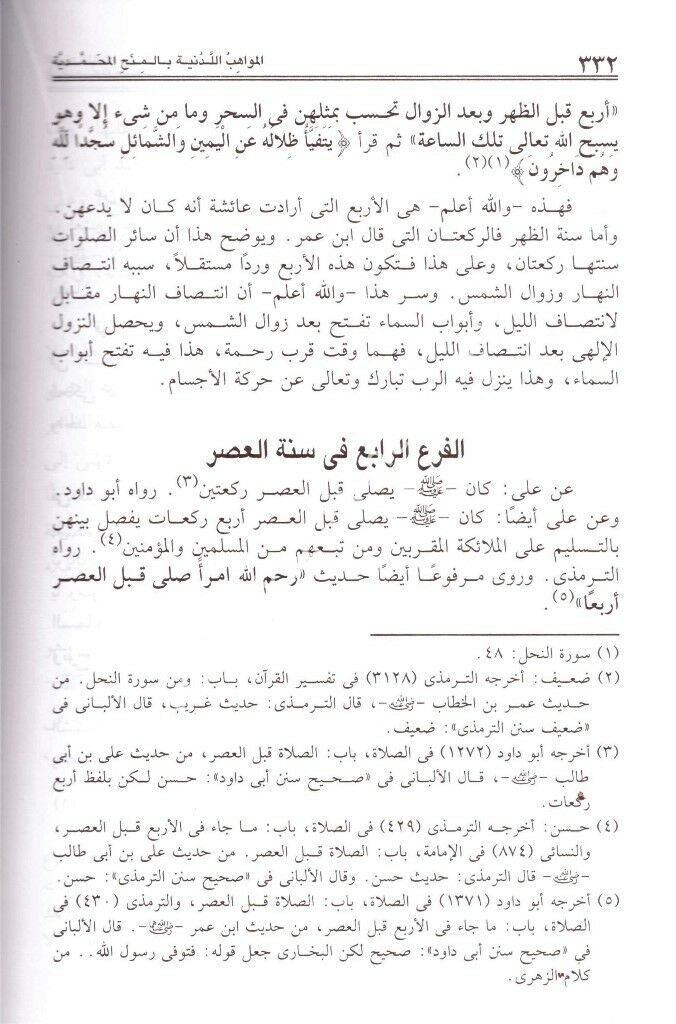 ٣٣٢ المواهب اللدنية بالمنح المحمدية
«أربع قبل الظهر وبعد الزوال تحسب بمثلهن فى السحر وما من شىء إلا وهو
يسبح الله تعالى تلك الساعة» ثم قرأ ﴿ يَتَفَيَّأُ ظِلَالُهُ عَنِ الْيَمِينِ وَالشَّمَائِلِ سُجَّدًا لِّلَّهِ
وَهُمْ دَاخِرُونَ ﴾(١)(٢).
فهذه -والله أعلم- هى الأربع التى أرادت عائشة أنه كان لا يدعهن.
وأما سنة الظهر فالركعتان التى قال ابن عمر. ويوضح هذا أن سائر الصلوات
سنتها ركعتان، وعلى هذا فتكون هذه الأربع وردًا مستقلاً، سببه انتصاف
النهار وزوال الشمس. وسر هذا -والله أعلم- أن انتصاف النهار مقابل
لانتصاف الليل، وأبواب السماء تفتح بعد زوال الشمس، ويحصل النزول
الإلهى بعد انتصاف الليل، فهما وقت قرب رحمة، هذا فيه تفتح أبواب
السماء، وهذا ينزل فيه الرب تبارك وتعالى عن حركة الأجسام.
الفرع الرابع فى سنة العصر
عن على: كان -ﷺ- يصلى قبل العصر ركعتين(٣). رواه أبو داود.
وعن على أيضًا: كان -ﷺ- يصلى قبل العصر أربع ركعات يفصل بينهن
بالتسليم على الملائكة المقربين ومن تبعهم من المسلمين والمؤمنين(٤). رواه
الترمذى. وروى مرفوعًا أيضًا حديث «رحم الله امرأ صلى قبل العصر
أربعًا»(٥).
(١) سورة النحل: ٤٨.
(٢) ضعيف: أخرجه الترمذى (٣١٢٨) فى تفسير القرآن، باب: ومن سورة النحل. من
حديث عمر بن الخطاب -رضي الله عنه-، قال الترمذى: حديث غريب، قال الألبانى فى
«ضعيف سنن الترمذى»: ضعيف.
(٣) أخرجه أبو داود (١٢٧٢) فى الصلاة، باب: الصلاة قبل العصر، من حديث على بن أبى
طالب -رضي الله عنه-، قال الألبانى فى «صحيح سنن أبى داود»: حسن لكن بلفظ أربع
ركعات.
(٤) حسن: أخرجه الترمذى (٤٢٩) فى الصلاة، باب: ما جاء فى الأربع قبل العصر،
والنسائى (٨٧٤) فى الإمامة، باب: الصلاة قبل العصر. من حديث على بن أبى طالب
-رضي الله عنه- قال الترمذى: حديث حسن. وقال الألبانى فى «صحيح سنن الترمذى»: حسن.
(٥) أخرجه أبو داود (١٣٧١) فى الصلاة، باب: الصلاة قبل العصر، والترمذى (٤٣٠) فى
الصلاة، باب: ما جاء فى الأربع قبل العصر، من حديث ابن عمر -رضي الله عنهما-. قال الألبانى
في «صحيح سنن أبى داود»: صحيح لكن البخارى جعل قوله: فتوفى رسول الله.. من
كلام الزهرى.